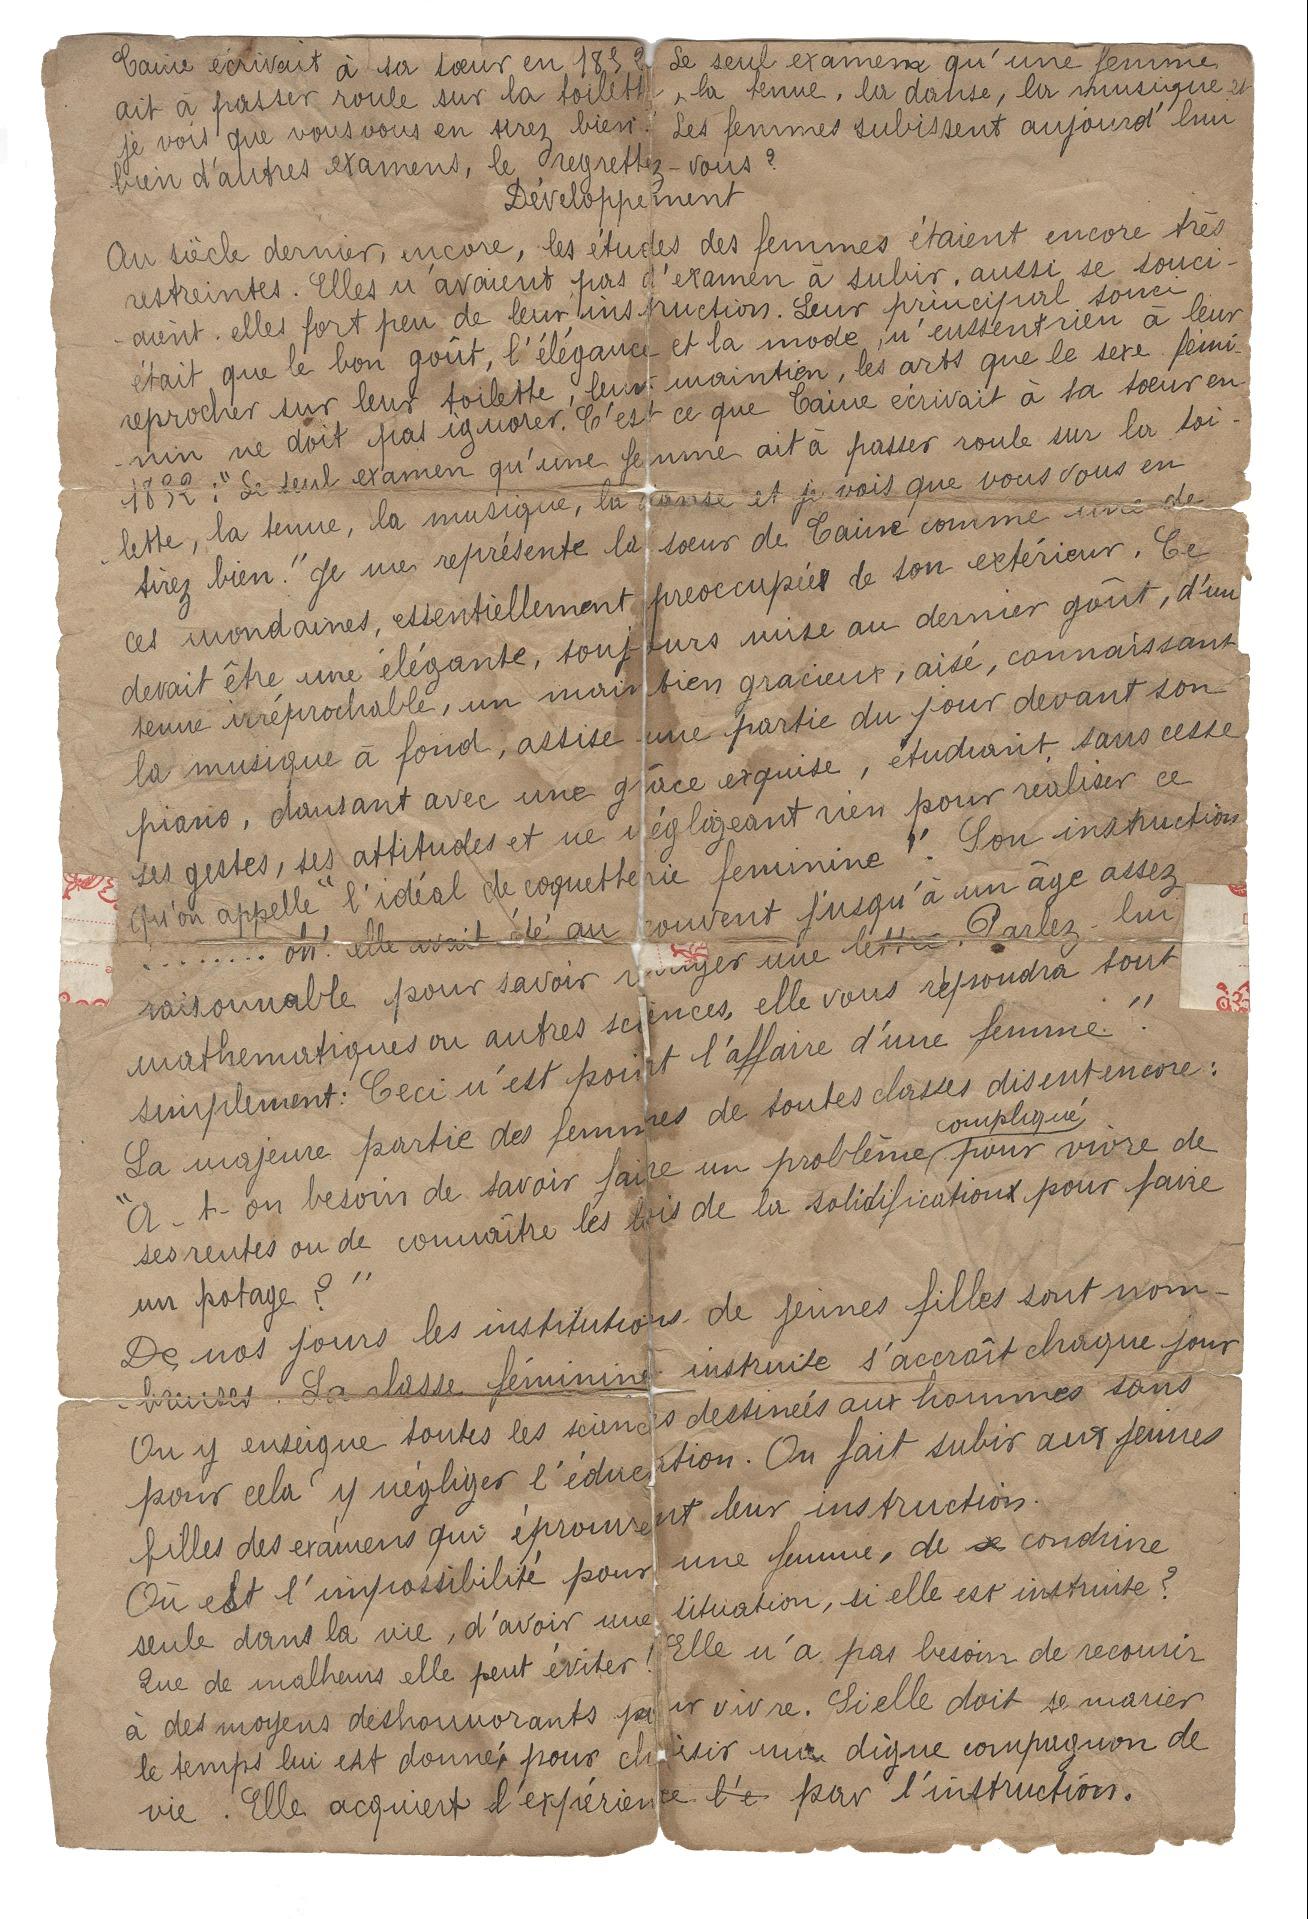 Taine écrivait à sa sœur en 1832 Le seul examen qu'une femme
ait à passer roule sur la toilette, la tenue, la danse, la musique et
je vois que vous vous en tirez bien. Les femmes subissent aujourd'hui
bien d'autres examens, le regrettez-vous?
Développement
Au siècle dernier, encore, les études des femmes étaient encore très
restreintes. Elles n'avaient pas d'examen à subir, aussi se souci-
-aient. elles fort peu de leur instruction. Leur principal souci
était que le bon goût, l'élégance et la mode, n'eussent rien à leur
reprocher sur leur toilette, leur maintien, les arts que le sexe fémi-
-nin ne doit pas ignorer. C'est ce que Taine écrivait à sa sœur en
1832 : "Le seul examen qu'une femme ait à passer roule sur la toi-
lette, la tenue, la musique, la danse et je vois que vous vous en
tirez bien." Je me représente la sœur de Taine comme une de
ces mondaines, essentiellement préoccupée de son extérieur. Ce
devait être une élégante, toujours mise au dernier goût, d'un
tenue irréprochable, un maintien gracieux, aisé, connaissant
la musique à fond, assise une partie du jour devant son
piano, dansant avec une grâce exquise, étudiant sans cesse
ses gestes, ses attitudes et ne négligeant rien pour réaliser ce
qu'on appelle "l'idéal de coquetterie feminine". Son instruction
......... oh! elle avait été au couvent jusqu'à un âge assez
raisonnable pour savoir rédiger une lettre. Parlez-lui
mathematiques ou autres sciences, elle vous répondra tout
simplement: Ceci n'est point l'affaire d'une femme".
La majeure partie des femmes de toutes classes disent encore:
compliqué
"A-t-on besoin de savoir faire un problème pour vivre de
ses rentes ou de connaître les lois de la solidification pour faire
un potage?"
De nos jours les institutions de jeunes filles sont nom-
-breuses. La classe féminine instruite s'accroît chaque jour
On y enseigne toutes les sciences destinées aux hommes sans
pour cela y négliger l'éducation. On fait subir aux jeunes
filles des examens qui éprouvent leur instruction.
Où est l'impossibilité pour une femme, de se conduire
seule dans la vie, d'avoir une situation, si elle est instruite?
Que de malheurs elle peut éviter! Elle n'a pas besoin de recourir
à des moyens deshonnorants pour vivre. Si elle doit se marier
le temps lui est donné pour choisir un digne compagnon de
vie. Elle acquiert l'expérience l'e par l'instruction.